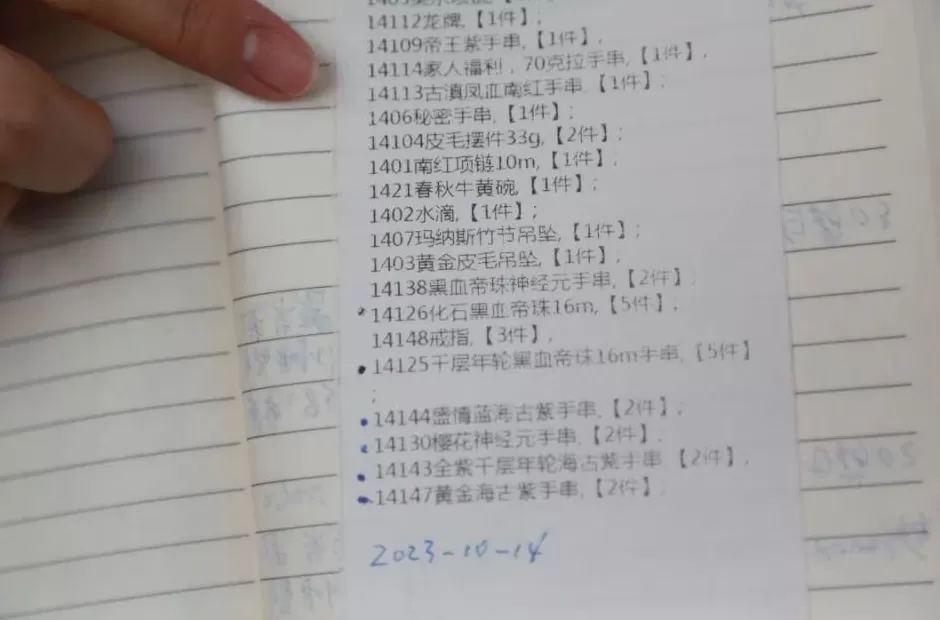 14112龙牌,【1件】;
14109帝王紫手串,【1件】,
14114家人福利，70克拉手串,【1件】,
14113古滇凤血南红手串,【1件】;
1406秘密手串,【1件】;
14104皮毛摆件33g,【2件】;
1401南红项链10m,【1件】;
1421春秋牛黄碗,【1件】;
1402水滴,【1件】;
1407玛纳斯竹节吊坠,【1件】;
1403黄金皮毛吊坠,【1件】;
14138黑血帝珠神经元手串,【2件】;
14126化石黑血帝珠16m,【5件】;
14148戒指,【3件】,
14125千层年轮黑血帝珠16m手串,【5件】
;
14144盛情蓝海古紫手串,【2件】;
14130樱花神经元手串,【2件】.
14143全紫千层年轮海古紫手串【2件】,
14147黄金海古紫手串,【2件】.
2023-10-14